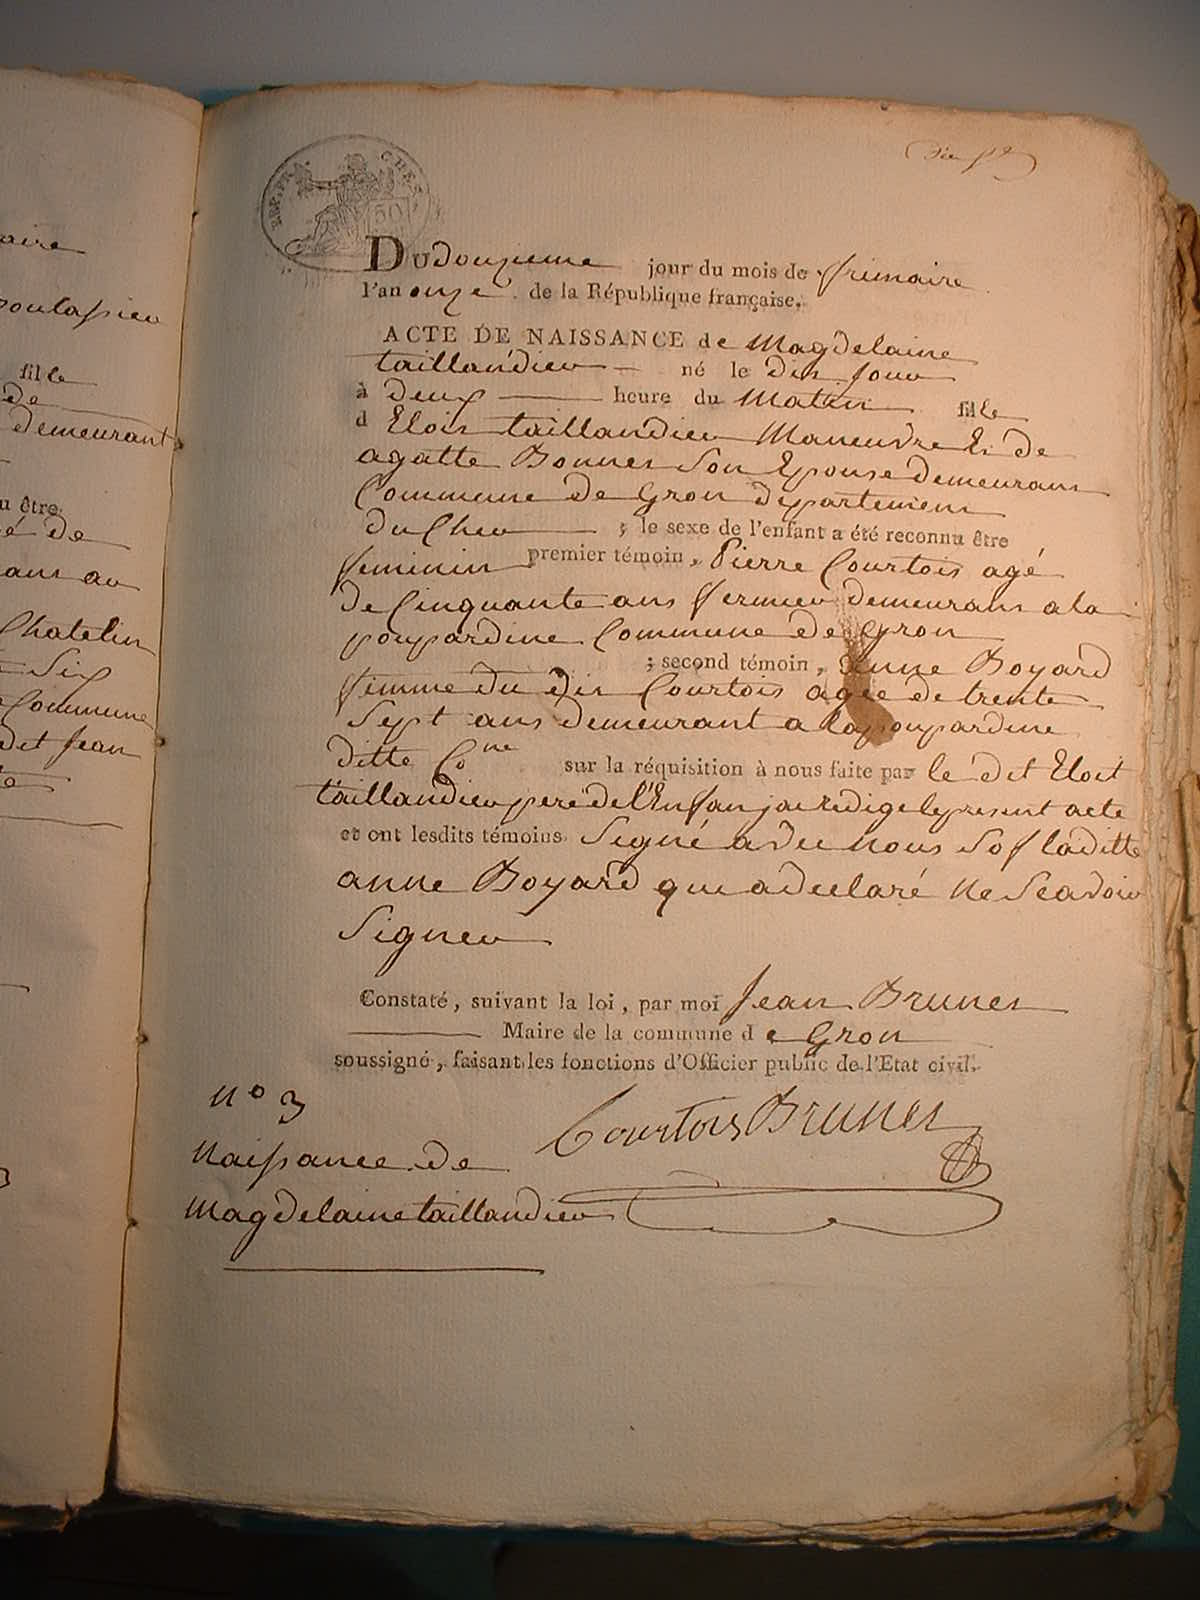 aire
fille
de
demeurant
u être
é de
ans au
Chatelin
Six
Commune
dit Jean
REP. FRA. CHES
50
Du douzieme jour du mois de frimaire
l'an onze de la République française.
ACTE DE NAISSANCE de Magdelaine
taillandier né le dit Jour
à deux heure du Matin fille
d Eloit taillandier Maneuvre Et de
agatte Bonnet Son Epouse demeurant
Commune de Gron departement
du Cher ; le sexe de l'enfant a été reconnu être
feminin premier témoin, Pierre Courtois agé
de Cinquante ans fermier demeurant a la
poupardine Commune de Gron
; second témoin, anne Boyard
femme du dit Courtois agée de trente
Sept ans demeurant a la poupardine
ditte Cne sur la réquisition à nous faite par le dit Eloit
taillandier pere de l'Enfan jai redige le present acte
et ont lesdits témoins Signé avec nous Sof laditte
anne Boyard qui a declaré ne Scavoir
Signer
Constaté, suivant la loi, par moi Jean Brunet
Maire de la commune d e Gron
soussigné, faisant les fonctions d'Officier public de l'Etat civil.
n° 3
Courtois Brunet
Naissance de
Magdelaine taillandier